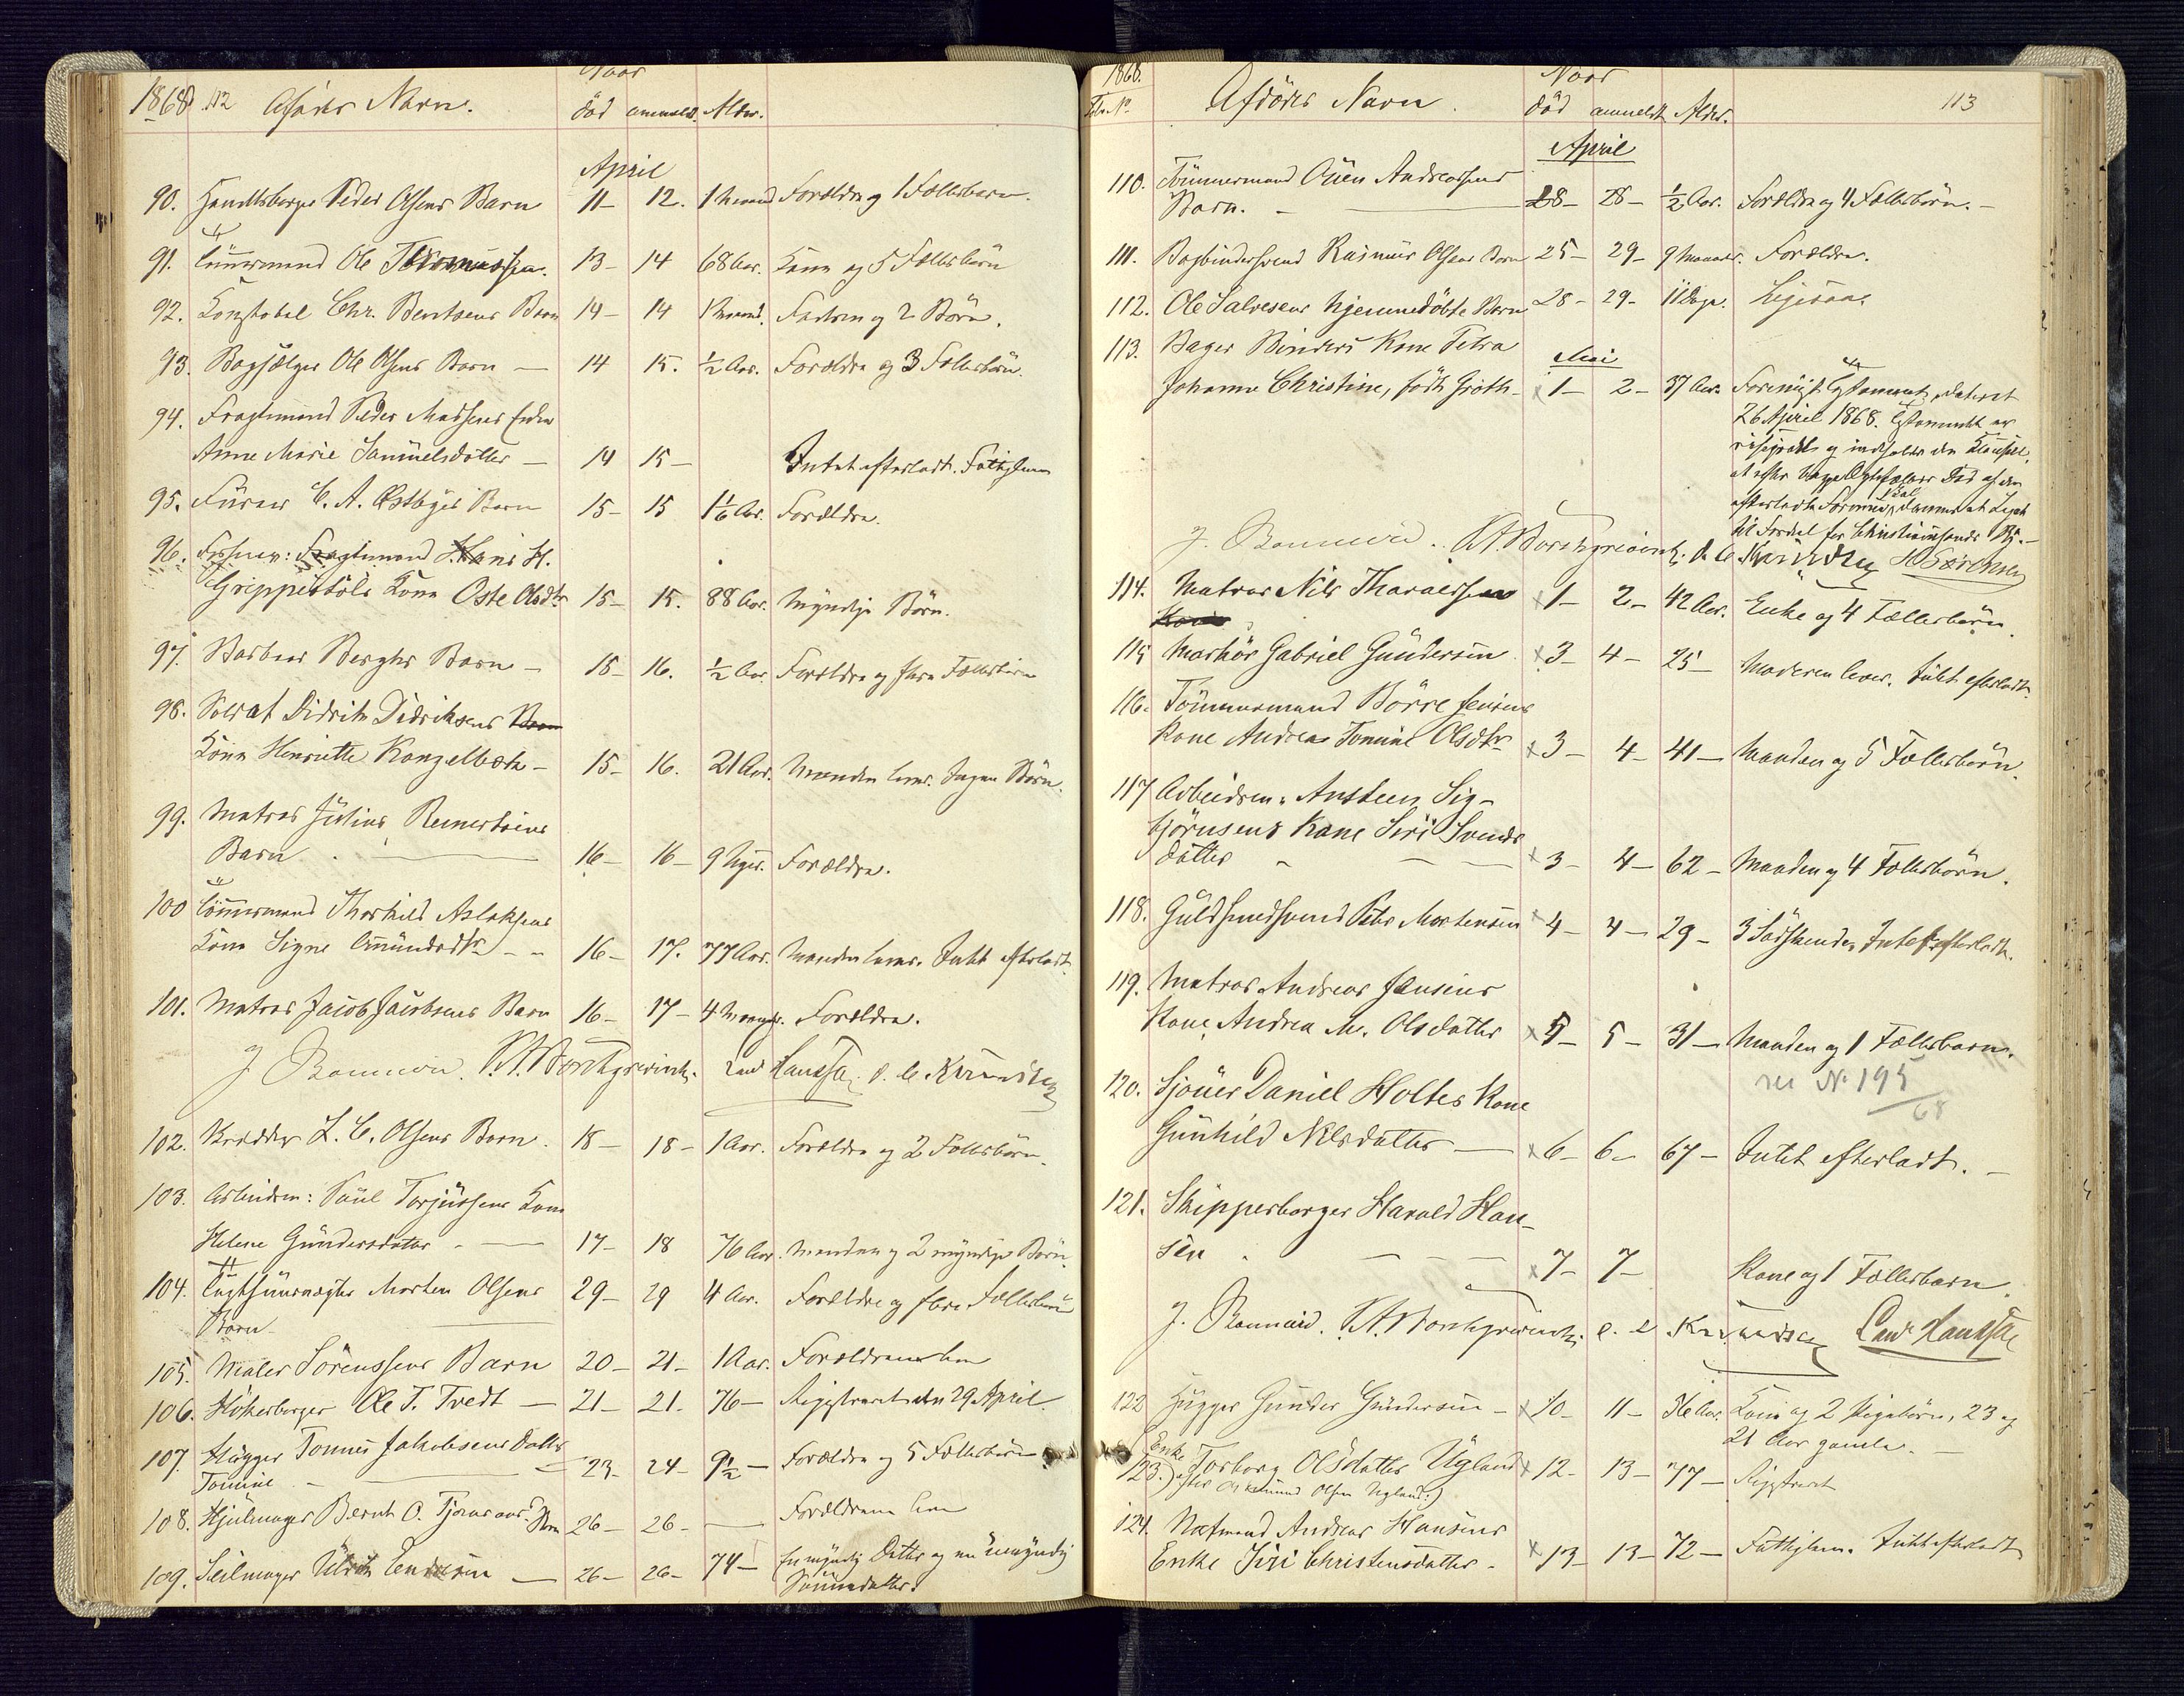 1868 112 Afdødes Navn. Naar
død anmeldt. Alder.
April
90. Handelsborger Peder Olsens Barn 11- 12. 1 Maaned Forældre og 1 Fællesbarn.
91. Tømmermand Ole Thomassen. 13- 14 68 Aar. Kone og 5 Fællesbørn
92. Konstabel Chr. Bentsens Barn 14- 14 1 Maaned. Faderen og 2 Børn.
93. Bogsælger Ole Olsens Barn — 14 15. ½ Aar. Forældre og 3 Fællesbørn.
94. Fragtmand Peder Madsens Enke
Anne Marie Samuelsdatter — 14 15- Intet efterladt. Fattiglem
95. Furer C. A. Østbyes Barn 15- 15 1 1/6 Aar. Forældre.
96. Fragtmand Hans H.
Grippestøls Kone Oste Olsdtr 15- 15. 88 Aar. Myndige Børn.
97. Barber Berghs Barn — 15- 16. ½ Aar. Forældre og flere Fællesbørn
98. Soldat Didrik Didriksens Barn
Kone Henriette — 15- 16. 21 Aar. Manden lever. Ingen Børn.
99. Matros Julius Reinertsens
Barn. — 16- 16- 9 Uger. Forældre.
100 Tømmermand Thorkild Aslaksens
Kone Signe Amundsdtr - - 16- 17. 77 Aar. Manden lever. Intet efterladt.
101. Matros Jacob Jacobsens Barn 16- 17- 4 Maaneder. Forældre.
J. Bomnevie.
102. L. C. Olsens Barn. 18- 18- 1 Aar. Forældre og 2 Fællesbørn.
103. Arbeidsm: Paul Torjussens Kone
Helene Gundersdatter - — 17- 18 76 Aar. Manden og 2 myndige Børn.
104. Morten Olsens 29- 29 4 Aar. Forældre og flere Fællesbørn
Barn —
105. Maler Sørenssens Barn 20- 21- 1 Aar. Forældrene leve
106. Høkerborger Ole T. Tvedt — 21- 21. 76- Registreret den 29 April.
107. Hugger Tommes Jakobsens Datter
Tomine - — 23- 24- 9½- Forældre og 5 Fællesbørn
108. Hjulmager Bernt O. Barn 26- 26- — Forældrene leve
109. Seilmager Ulrik Endresen — 26- 26- 74- En myndig Datter og en umyndig
Sønnedatter.
1868. Afdødes Navn. Naar 113
Løb. No. død anmeldt Alder.
April
110. Tømmermand Ouen Andreassens
Barn. - — 28- 28- ½ Aar. Forældre og 4 Fællesbørn. -
111. Bogbindersvend Rasmus Olsens Barn 25- 29- 9 Maaneder. Forældre.
112. Ole Salvesens hjemmedøbte Barn 28- 29- 11 Dage. Ligesaa.
113. Bager Binders Kone Petra
Mai
Johanne Christine, født Groth- x 1- 2- 37 Aar. Foreviist Testament, dateret
26 April 1868. Testamentet er
og indeholder den Klausul,
at efter begge Ægtefællers Død af den
efterladte Formue skal dannes et Legat
til Fordel for Christianssands By. -
J. Bomnevie.
114. Matros Nils Tharaldsen x 1- 2- 42 Aar. Enke og 4 Fællesbørn.
Kone
115 Markør Gabriel Gundersen x 3- 4- 25- Moderen lever. Intet efterladt
116. Tømmermand Børre Jensens
Kone Andrea Tomine Olsdtr x 3- 4- 41- Manden og 5 Fællesbørn.
117 Arbeidsm. Ansteen Sig-
bjørnsens Kone Siri Svends
datter - — x 3- 4- 62- Manden og 4 Fællesbørn.
118. Guldsmedsvend Peter Mortensen x 4- 4- 29- 3 Sødskende. Intet efterladt.
119. Matros Andreas Jensens
Kone Andrea M. Olsdatter x 5- 5- 31- Manden og 1 Fællesbarn.
se No 195
68
120. Sjouer Daniel Holtes Kone
Gunhild Nilsdatter — x 6- 6- 67- Intet efterladt. -
121. Skipperborger Harald Han-
sen - — x 7- 7- Kone og 1 Fællesbarn.
J. Bomnevie.
122 Hugger Gunder Gundersen - x 10- 11- Aar. Kone og 2 Pigebørn, 23 og
21 Aar gamle. -
Enke
123. Torborg Olsdatter Ugland x 12- 13- 77- Registreret
efter Olsen Ugland:)
124. Andreas Hansens
Enke Siri Christensdatter - x 13- 13- 72- Fattiglem. Intet efterladt